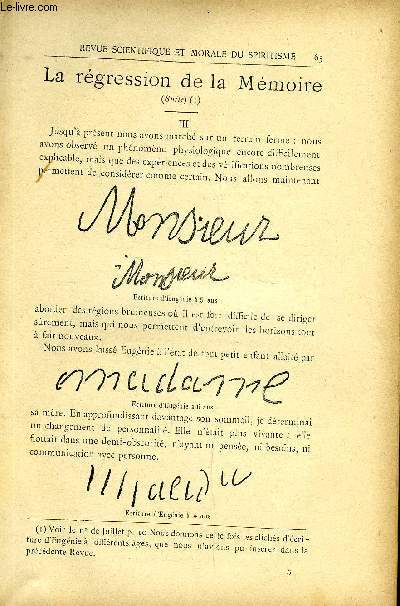 www.le-livre.com
REVUE SCIENTIFIQUE ET MORALE DU SPIRITISME 65
La régression de la Mémoire
(Suite) (1)
III
Jusqu'à présent nous avons marché sur un terrain ferme ; nous
avons observé un phénomène physiologique encore difficilement
explicable, mais que des expériences et des vérifications nombreuses
permettent de considérer comme certain. Nous allons maintenant
Monsieur
Monsieur
Ecriture d'Eugénie à 8 ans
aborder des régions brumeuses où il est fort difficile de se diriger
sûrement, mais qui nous permettent d'entrevoir les horizons tout
à fait nouveaux.
Nous avons laissé Eugénie à l'état de tout petit enfant allaité par
madame
Ecriture d'Eugénie à ans
sa mère. En approfondissant davantage son sommeil, je déterminai
un changement de personnalité. Elle n'était plus vivante : elle
flottait dans une demi-obscurité, n'ayant ni pensée, ni besoins, ni
communication avec personne.
Ecriture d'Eugénie à 4 ans
(1) Voir le n° de Juillet p. Nous donnons cette fois les clichés d'écri-
ture d'Eugénie à différents âges, que nous n'avions pu insérer dans la
précédente Revue.
5